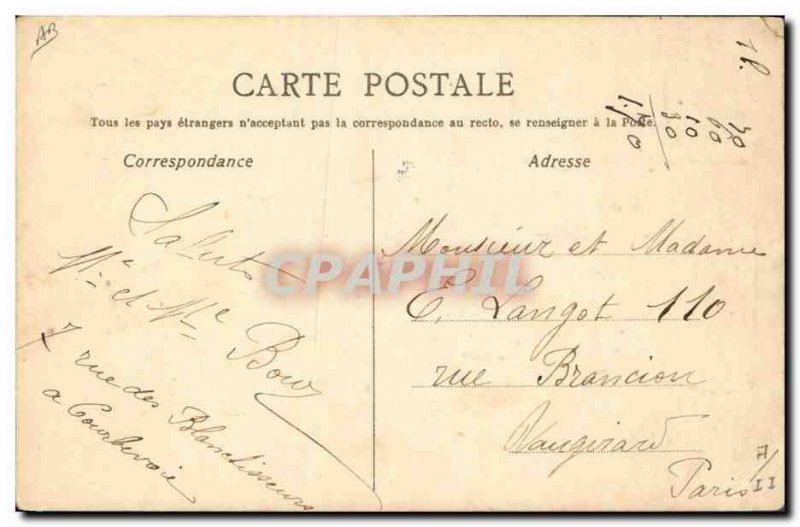 AB
CARTE POSTALE
Tous les pays étrangers n'acceptant pas la correspondance au recto, se renseigner à la Poste.
Correspondance
Saluts
Mr et Me
7 rue des Blanchisseurs
a Courbevoie
Adresse
Monsieur et Madame
E. Langot 110
rue Brancion
Vaugirard
Paris
CPAPHIL
70
60
10
30